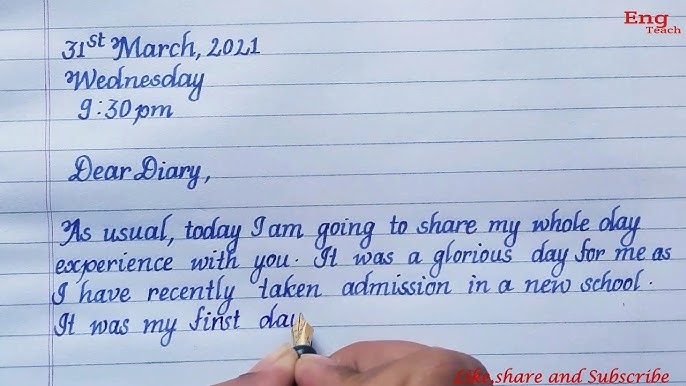 Eng
Teach
31st March, 2021
Wednesday
9:30pm
Dear Diary,
As usual, today I am going to share my whole day
experience with you. It was a glorious day for me as
I have recently taken admission in a new school.
It was my first day
Like,share and Subscribe